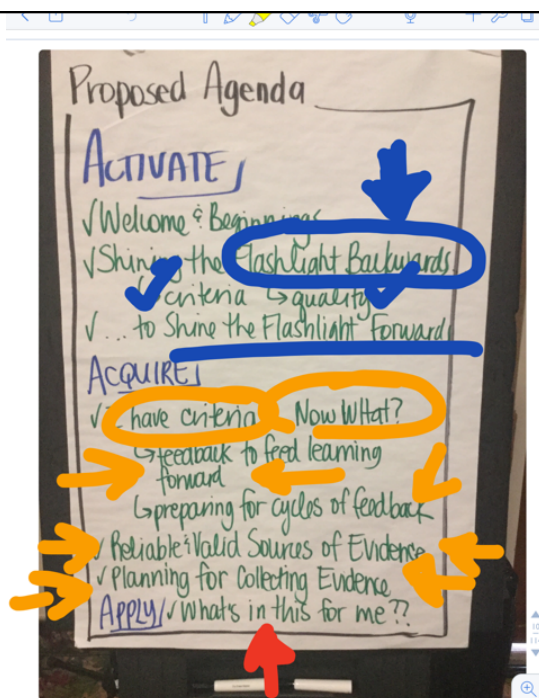 Proposed Agenda
ACTIVATE
✓ Welcome & Beginnings
✓ Shining the Flashlight Backwards
↳ criteria ↳ quality
✓ ... to Shine the Flashlight Forward
ACQUIRE
✓ I have criteria Now What?
↳ feedback to feed learning
forward
↳ preparing for cycles of feedback
✓ Reliable & Valid Sources of Evidence
✓ Planning for Collecting Evidence
APPLY ✓ What's in this for me??